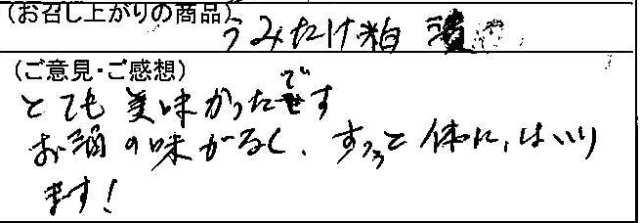 (お召し上がりの商品)
うみたけ粕漬
(ご意見・ご感想)
とても美味かったです
お酒の味がよく、すっと体に、はいり
ます!